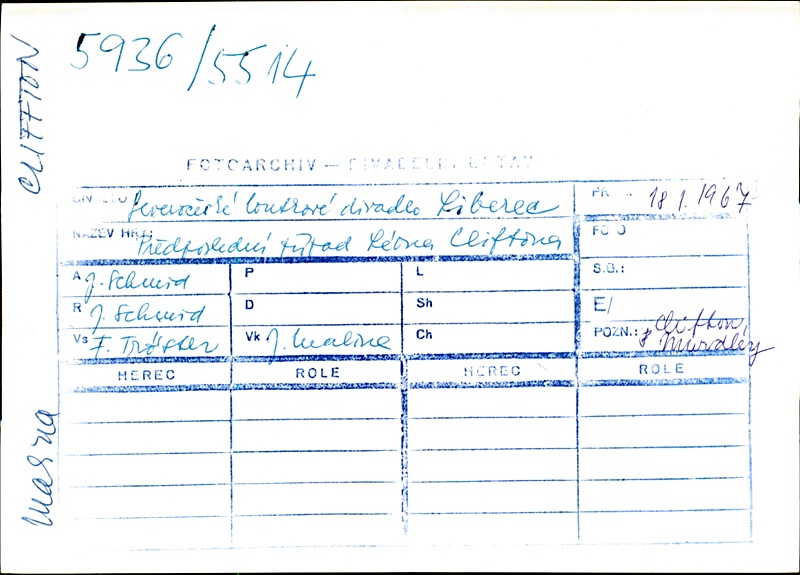 5936/5514
CLIFFTON
FOTOARCHIV — DIVADELNÍ ÚSTAV
DIVADLO Severočeské loutkové divadlo Liberec
PR. 18 1. 1967
NÁZEV HRY: Předposlední případ Léona Cliftona
FOTO
A J. Schmid P L S.B.:
R J. Schmid D Sh E/
Vs F. Tröster Vk J. Malina Ch POZN.: Clifton,
Murdley
HEREC ROLE HEREC ROLE